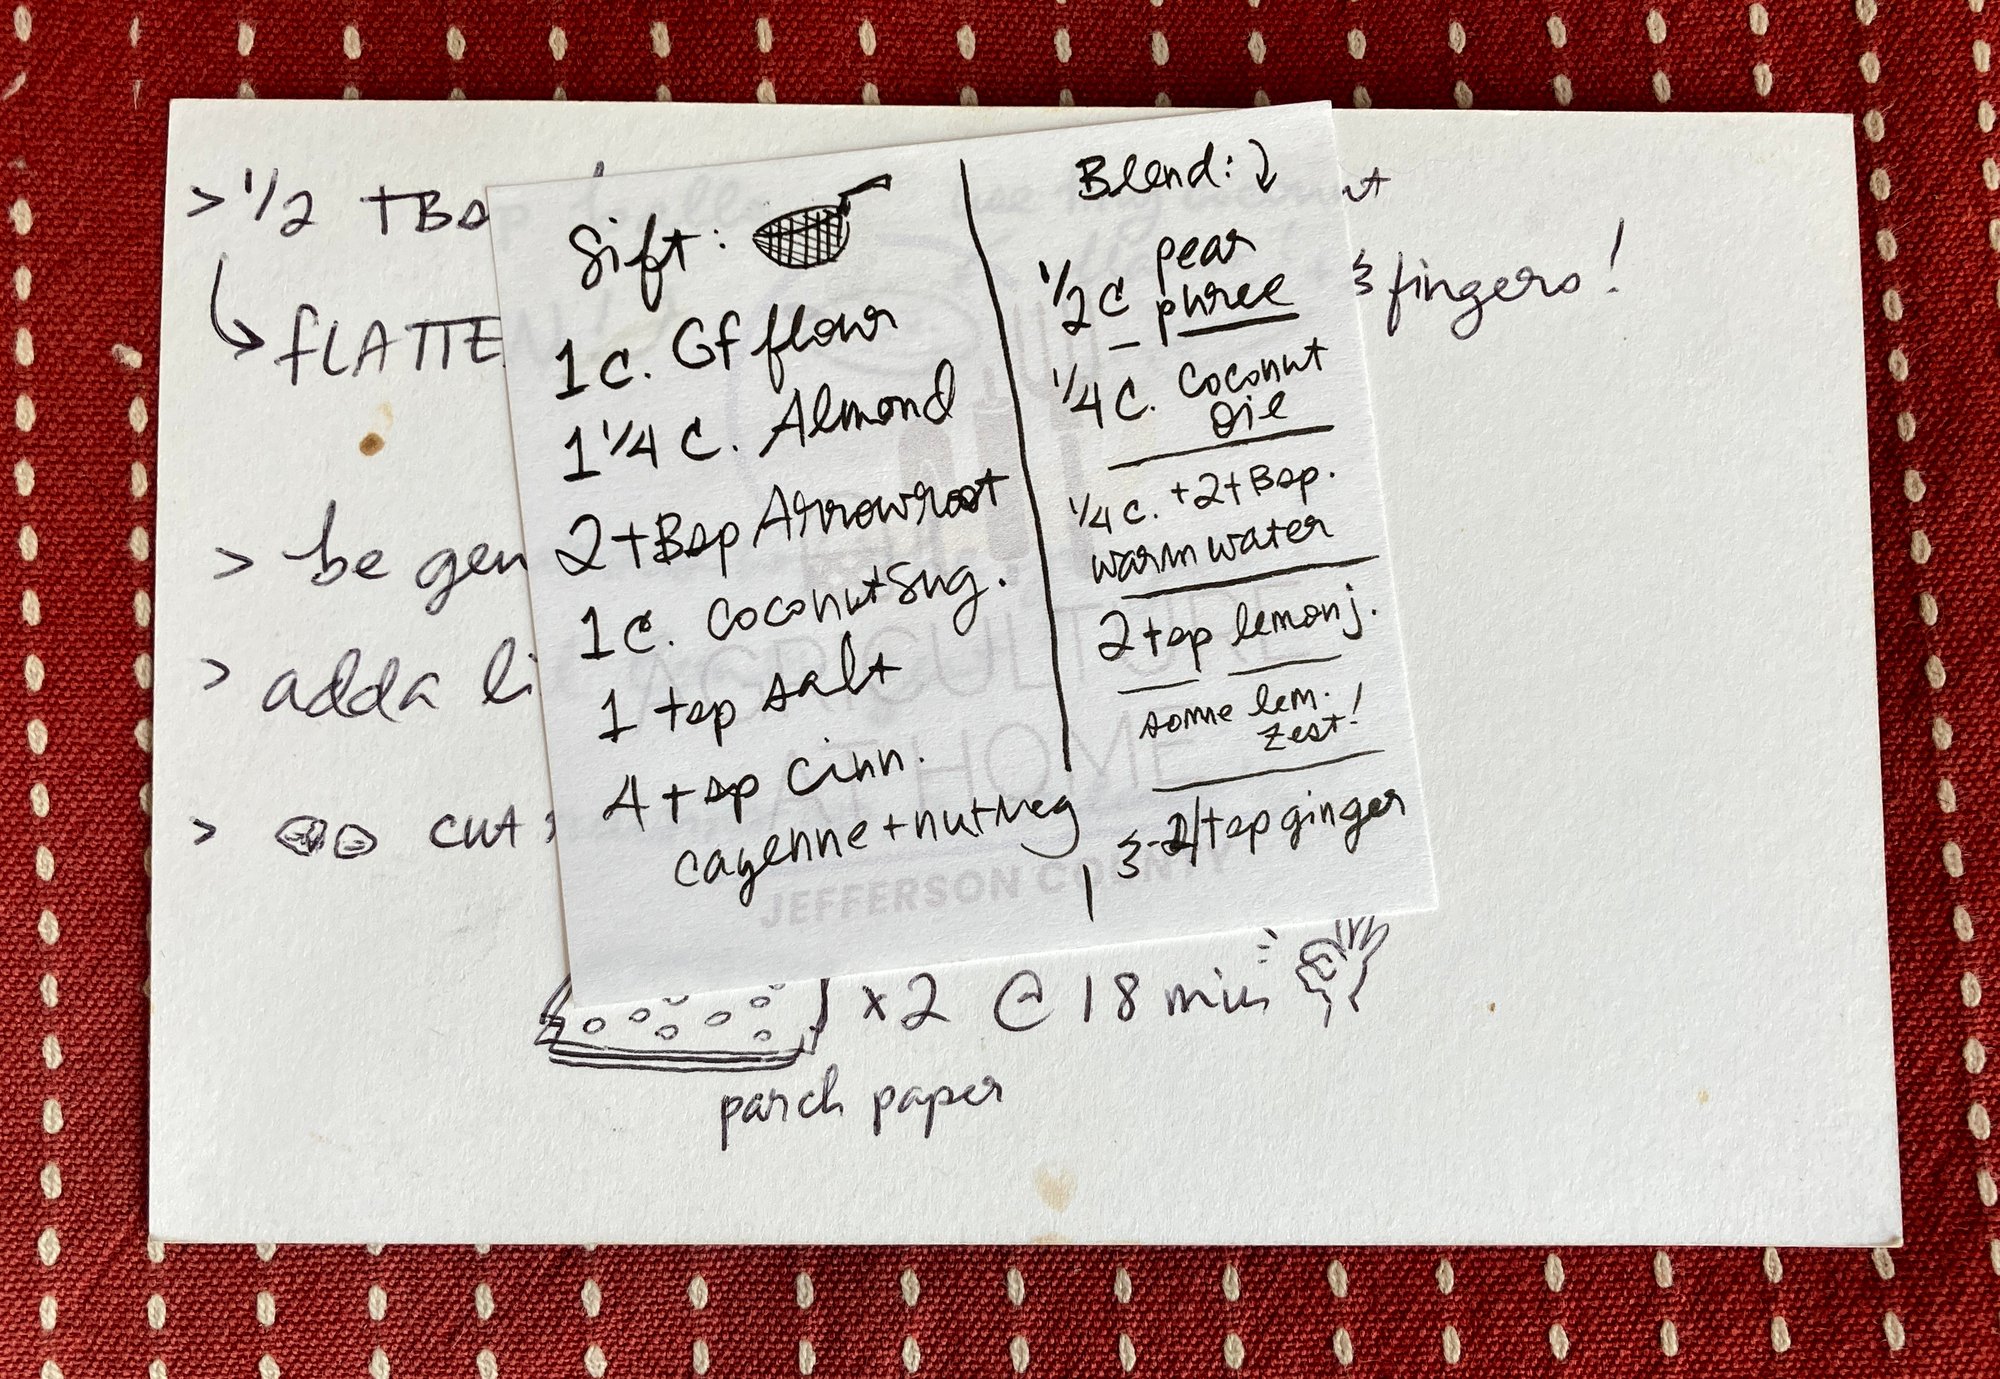 > 1/2 tBsp
FLATTE
& fingers!
> be gen
> adda li
> cut
x2 @ 18 min
parch paper
Sift:
1 c. Gf flour
1 1/4 c. Almond
2 tBsp Arrowroot
1 c. coconut Sug.
1 tsp salt
4 tsp Cinn.
cayenne + nutmeg
Blend:
1/2 C pear
puree
1/4 C. Coconut
Oil
1/4 c. + 2 tBsp.
warm water
2 tsp lemon j.
some lem.
zest!
tsp ginger
AGRICULTURE
AT HOME
JEFFERSON COUNTY